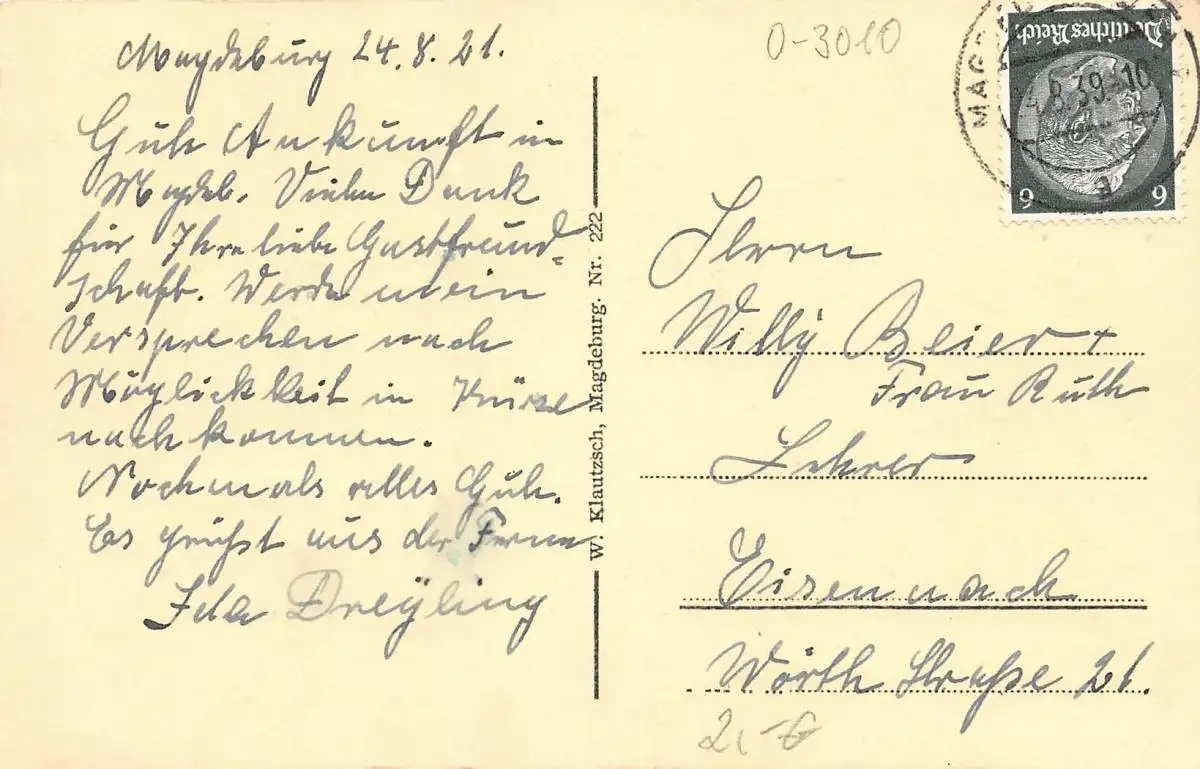 Magdeburg 24.8.21.
Gute Ankunft in
Magdeb. Vielen Dank
für Ihre liebe Gastfreund-
schaft. Werde mein
Versprechen nach
Möglichkeit in Kürze
nachkommen.
Nochmals alles Gute.
Es grüßt aus der Ferne
Ida Dreyling
W. Klautzsch, Magdeburg. Nr. 222
0-3010
Deutsches Reich
6 6
MAGD
8.39.-10
E
Herrn
Willy Beier +
Frau Ruth
Lehrer
Eisennach
Wörth Straße 21.
2,-€